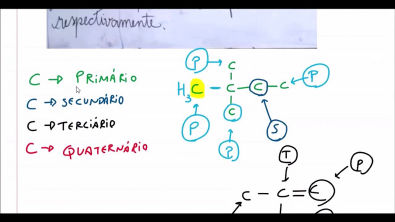 respectivamente.
C → PRIMÁRIO
C → SECUNDÁRIO
C → TERCIÁRIO
C → QUATERNÁRIO
P C
H3C - C - C - C P
C
P
P
S
T
P
C - C = C